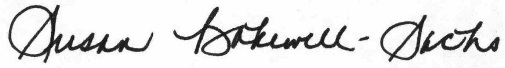 Susan Bakewell-Sachs